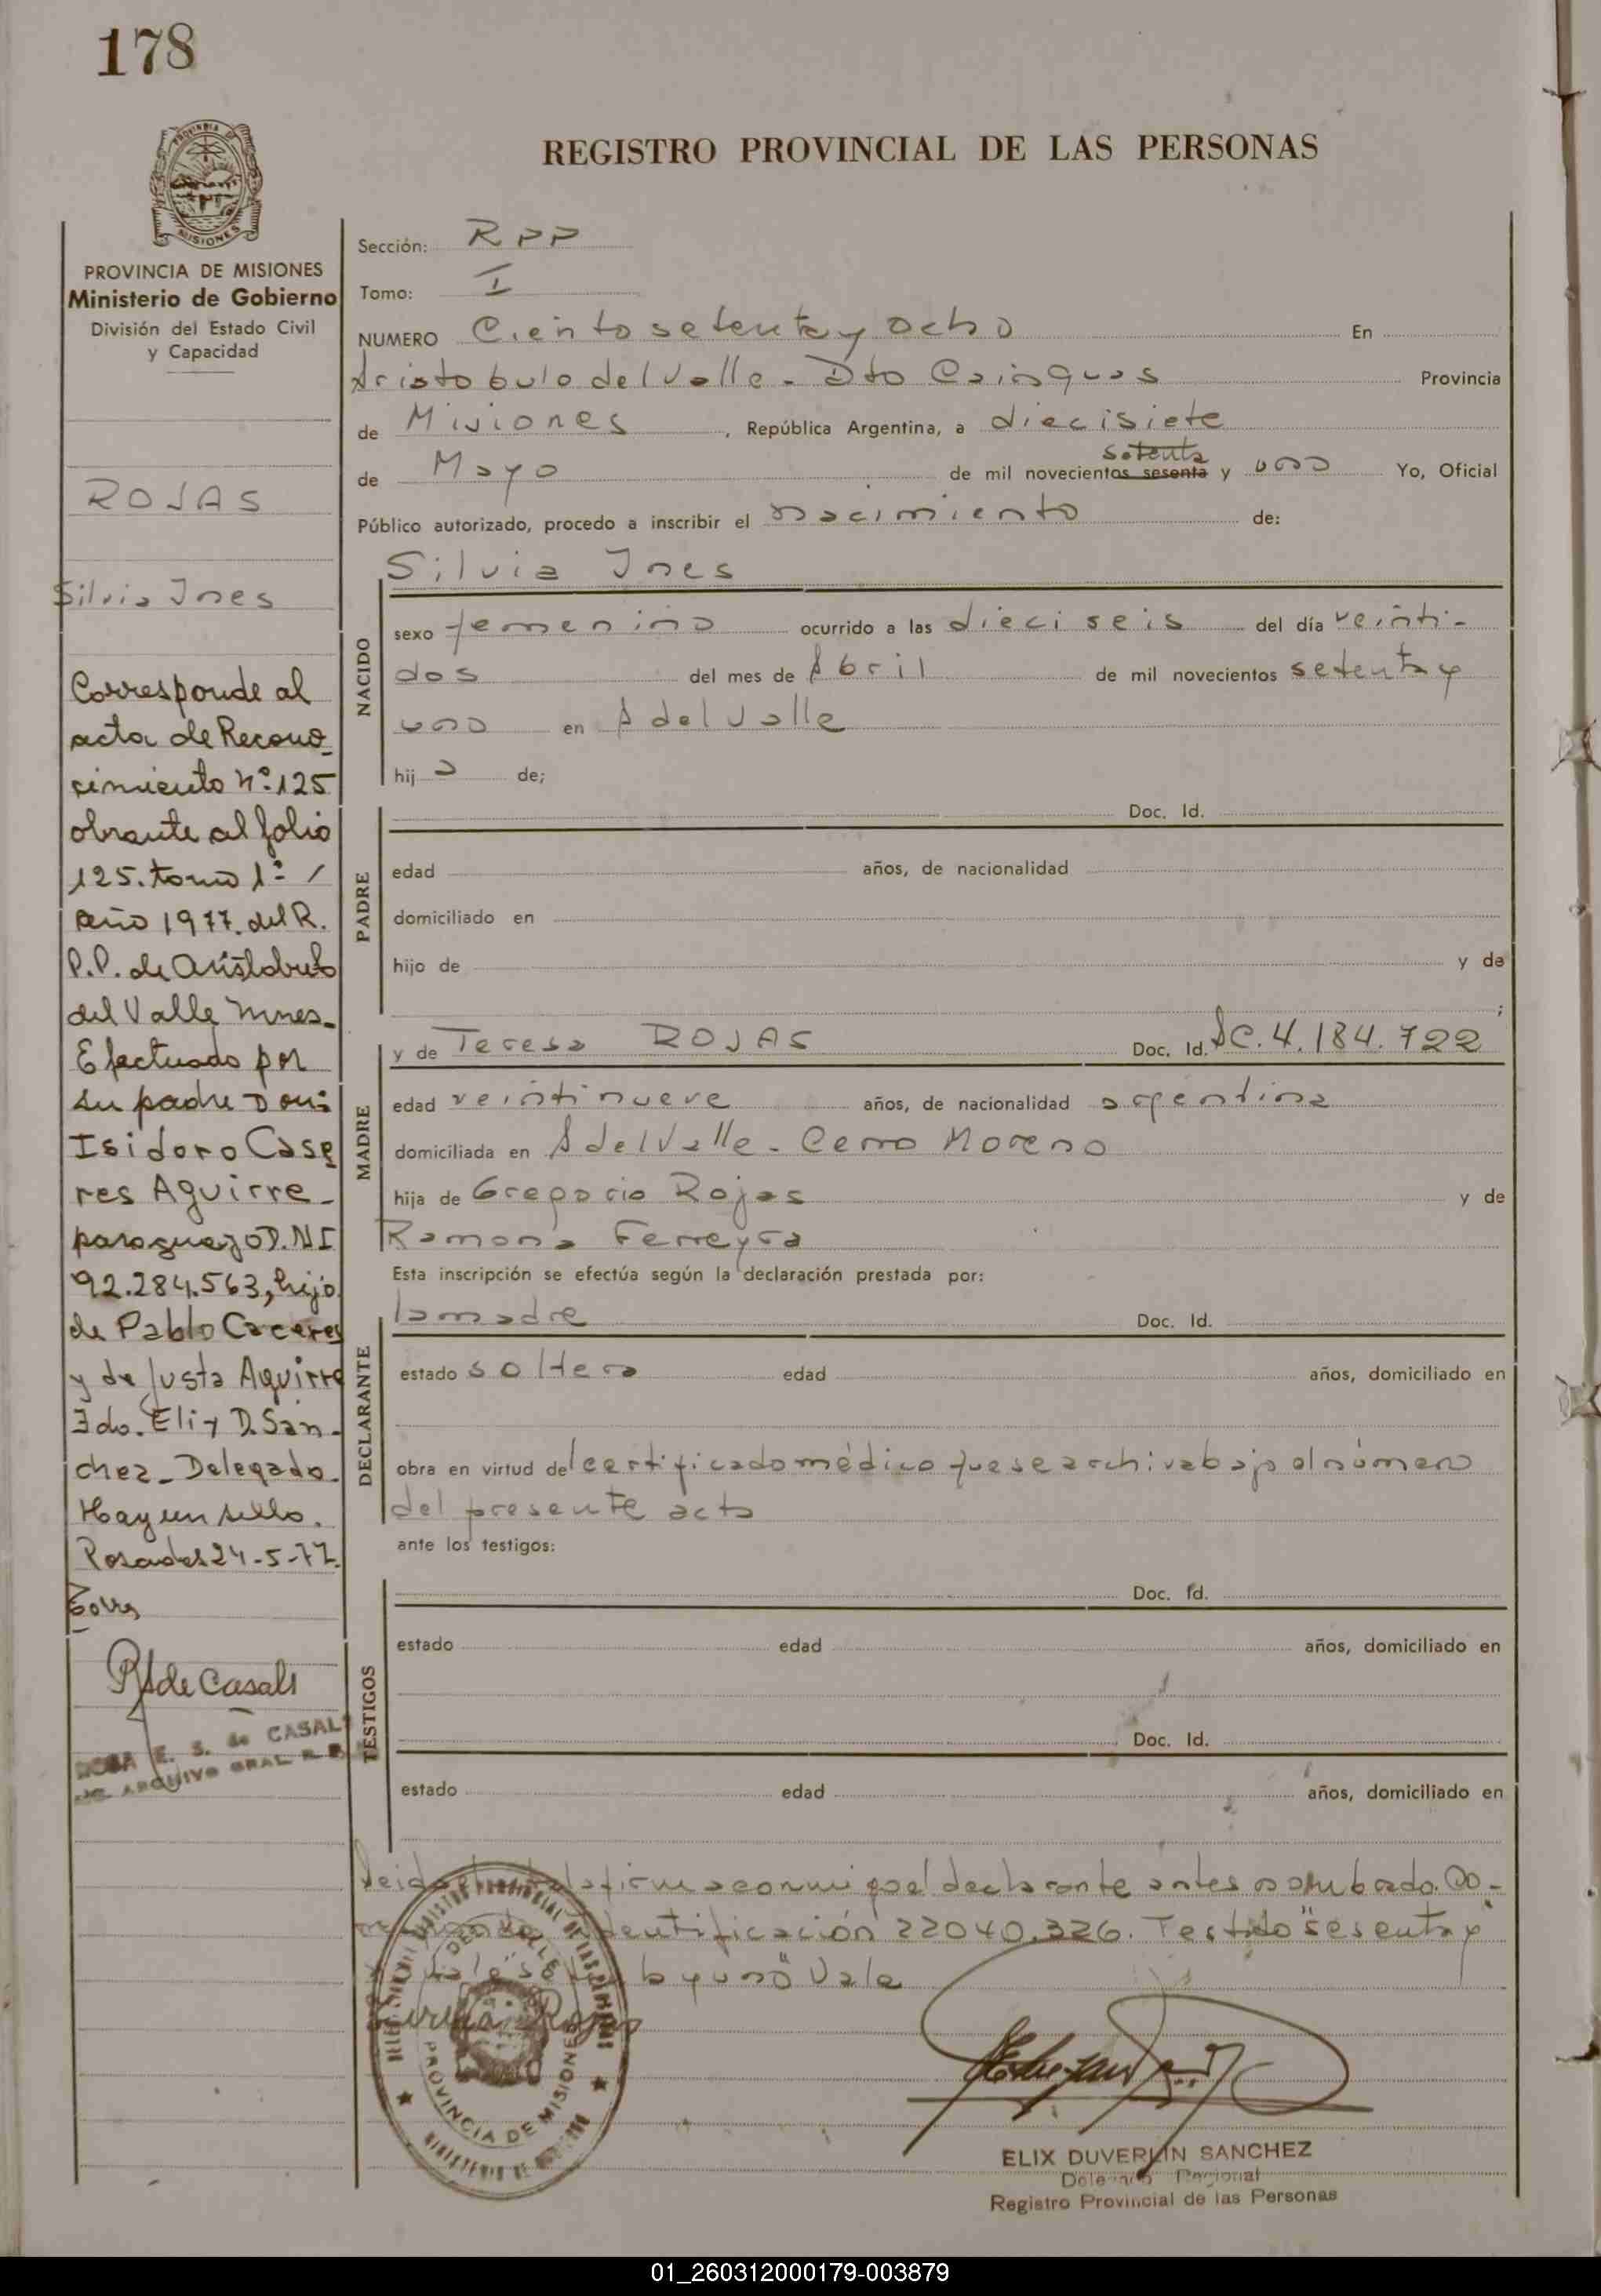 178
REGISTRO PROVINCIAL DE LAS PERSONAS
PROVINCIA DE MISIONES
Ministerio de Gobierno
División del Estado Civil
y Capacidad
ROJAS
Silvia Ines
Corresponde al
acta de Recono-
cimiento Nº 125
obrante al folio
125. tomo 1º- /
año 1977. del R.
P.P. de Aristobulo
del Valle Mnes.
Efectuado por
su padre Don:
Isidoro Case
res Aguirre-
paraguayo D.NI
92.284.563, hijo
de Pablo Caceres
y de Justa Aguirre
Fdo. Elix D. San-
chez_ Delegado.
Hay un sello.
Posadas 24-5-77.
R de Casals
ROSA E. S. de CASALS
ARCHIVO GRAL R. P.
Sección: RPP
Tomo: I
NUMERO Ciento setenta y ocho En
Aristobulo del Valle - Dto Cainguas Provincia
de Misiones, República Argentina, a diecisiete
setenta
de Mayo de mil novecientos sesenta y uno Yo, Oficial
Público autorizado, procedo a inscribir el nacimiento de:
Silvia Ines
NACIDO
sexo femenino ocurrido a las dieciseis del día veinti-
dos del mes de Abril de mil novecientos setenta y
uno en A del Valle
hij a de;
PADRE
Doc. Id.
edad años, de nacionalidad
domiciliado en
hijo de y de
;
MADRE
y de Teresa ROJAS Doc. Id. LC. 4.184.722
edad veintinueve años, de nacionalidad argentina
domiciliada en A del Valle - Cerro Moreno
hija de Gregorio Rojas y de
Ramona Ferreyra
Esta inscripción se efectúa según la declaración prestada por:
DECLARANTE
la madre Doc. Id.
estado soltera edad años, domiciliado en
obra en virtud del certificado médico que se archiva bajo el número
del presente acta
ante los testigos:
TESTIGOS
Doc. Id.
estado edad años, domiciliado en
Doc. Id.
estado edad años, domiciliado en
Leida el la firma conmigo el declarante antes nombrado. Co-
identificación 22040.326. Testado "sesenta y"
y uno" Vale
Rojas
DEL VALLE
PROVINCIA DE MISIONES
ELIX DUVERLIN SANCHEZ
Delegado Regional
Registro Provincial de las Personas
01_260312000179-003879